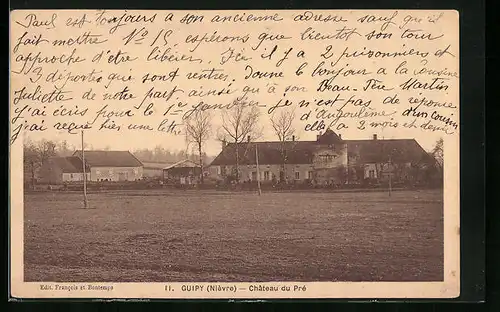 Paul est toujours a son ancienne adresse sauf qu'il
fait mettre No 15, espérons que bientot son tour
approche d'etre libérer, Ici il y a 2 prisonniers et
3 déportés que sont rentrés. Donne le bonjour a la cousine
Juliette de notre part ainsi qu'a son Beau-Père Martin
J'ai écris pour le 1er Janvier Je n'est pas de reponse
j'ai reçue hier une lettre d'Angouleme d'un cousin
il y a 2 mois et demi
Edit. François et Bontemps
11. GUIPY (Nièvre) — Château du Pré